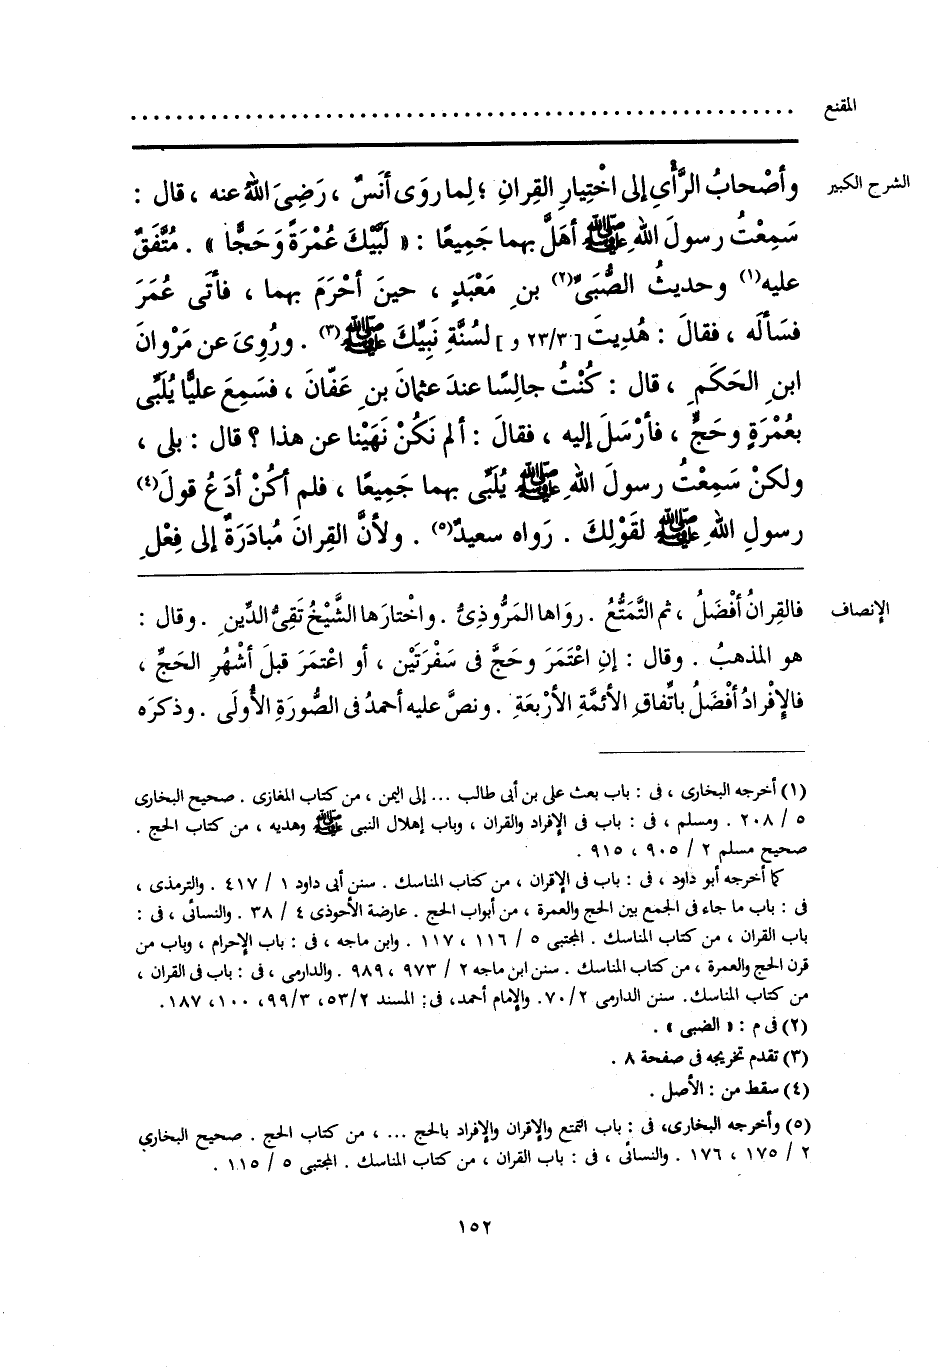 المقنع ............................................................
الشرح الكبير وأصْحابُ الرَّأْىِ إلى اخْتِيارِ القِرانِ ؛ لِما رَوَى أنَسٌ ، رَضِىَ اللهُ عنه ، قال :
سَمِعْتُ رسولَ اللهِ ﷺ أهَلَّ بهما جَمِيعًا : « لَبَّيْكَ عُمْرَةً وَحَجًّا » . مُتَّفَقٌ
عليه(١) وحديثُ الصُّبَىِّ(٢) بنِ مَعْبَدٍ ، حينَ أحْرَمَ بهما ، فأتَى عُمَرَ
فسَألَه ، فقالَ : هُدِيتَ [ ٢٣/٣ و ] لسُنَّةِ نَبِيِّكَ ﷺ(٣) . ورُوِىَ عن مَرْوانَ
ابنِ الحَكَمِ ، قال : كُنْتُ جالِسًا عندَ عثمانَ بنِ عَفّانَ ، فسَمِعَ عليًّا يُلَبِّى
بعُمْرَةٍ وحَجٍّ ، فأرْسَلَ إليه ، فقالَ : ألم نَكُنْ نَهَيْنا عن هذا ؟ قال : بلى ،
ولكنْ سَمِعْتُ رسولَ اللهِ ﷺ يُلَبِّى بهما جَمِيعًا ، فلم أكُنْ أدَعُ قولَ(٤)
رسولِ اللهِ ﷺ لقَوْلِكَ . رَواه سعيدٌ(٥) . ولأنَّ القِرانَ مُبادَرَةٌ إلى فِعْلِ
الإنصاف فالقِرانُ أفْضَلُ ، ثم التَّمَتُّعُ . رواها المَرُّوذِىُّ . واخْتارَها الشَّيْخُ تَقِىُّ الدِّينِ . وقال :
هو المذهبُ . وقال : إنِ اعْتَمَرَ وحَجَّ فى سَفْرَتَيْن ، أو اعْتمَرَ قبلَ أشْهُرِ الحَجِّ ،
فالإفْرادُ أفْضَلُ باتِّفاقِ الأئمَّةِ الأرْبعَةِ . ونصَّ عليه أحمدُ فى الصُّورَةِ الأُولَى . وذكرَه
(١) أخرجه البخارى ، فى : باب بعث على بن أبى طالب ... إلى اليمن ، من كتاب المغازى . صحيح البخارى
٥ / ٢٠٨ . ومسلم ، فى : باب فى الإفراد والقران ، وباب إهلال النبى ﷺ وهديه ، من كتاب الحج .
صحيح مسلم ٢ / ٩٠٥ ، ٩١٥ .
كما أخرجه أبو داود ، فى : باب فى الإقران ، من كتاب المناسك . سنن أبى داود ١ / ٤١٧ . والترمذى ،
فى : باب ما جاء فى الجمع بين الحج والعمرة ، من أبواب الحج . عارضة الأحوذى ٤ / ٣٨ . والنسائى ، فى :
باب القران ، من كتاب المناسك . المجتبى ٥ / ١١٦ ، ١١٧ . وابن ماجه ، فى : باب الإحرام ، وباب من
قرن الحج والعمرة ، من كتاب المناسك . سنن ابن ماجه ٢ / ٩٧٣ ، ٩٨٩ . والدارمى ، فى : باب فى القران ،
من كتاب المناسك. سنن الدارمى ٢/ ٧٠. والإمام أحمد، فى: المسند ٢/ ٥٣، ٣/ ٩٩، ١٠٠، ١٨٧.
(٢) فى م : « الضبى » .
(٣) تقدم تخريجه فى صفحة ٨ .
(٤) سقط من : الأصل .
(٥) وأخرجه البخارى، فى : باب التمتع والإقران والإفراد بالحج ... ، من كتاب الحج . صحيح البخارى
٢ / ١٧٥ ، ١٧٦ . والنسائى ، فى : باب القران ، من كتاب المناسك . المجتبى ٥ / ١١٥ .
١٥٢